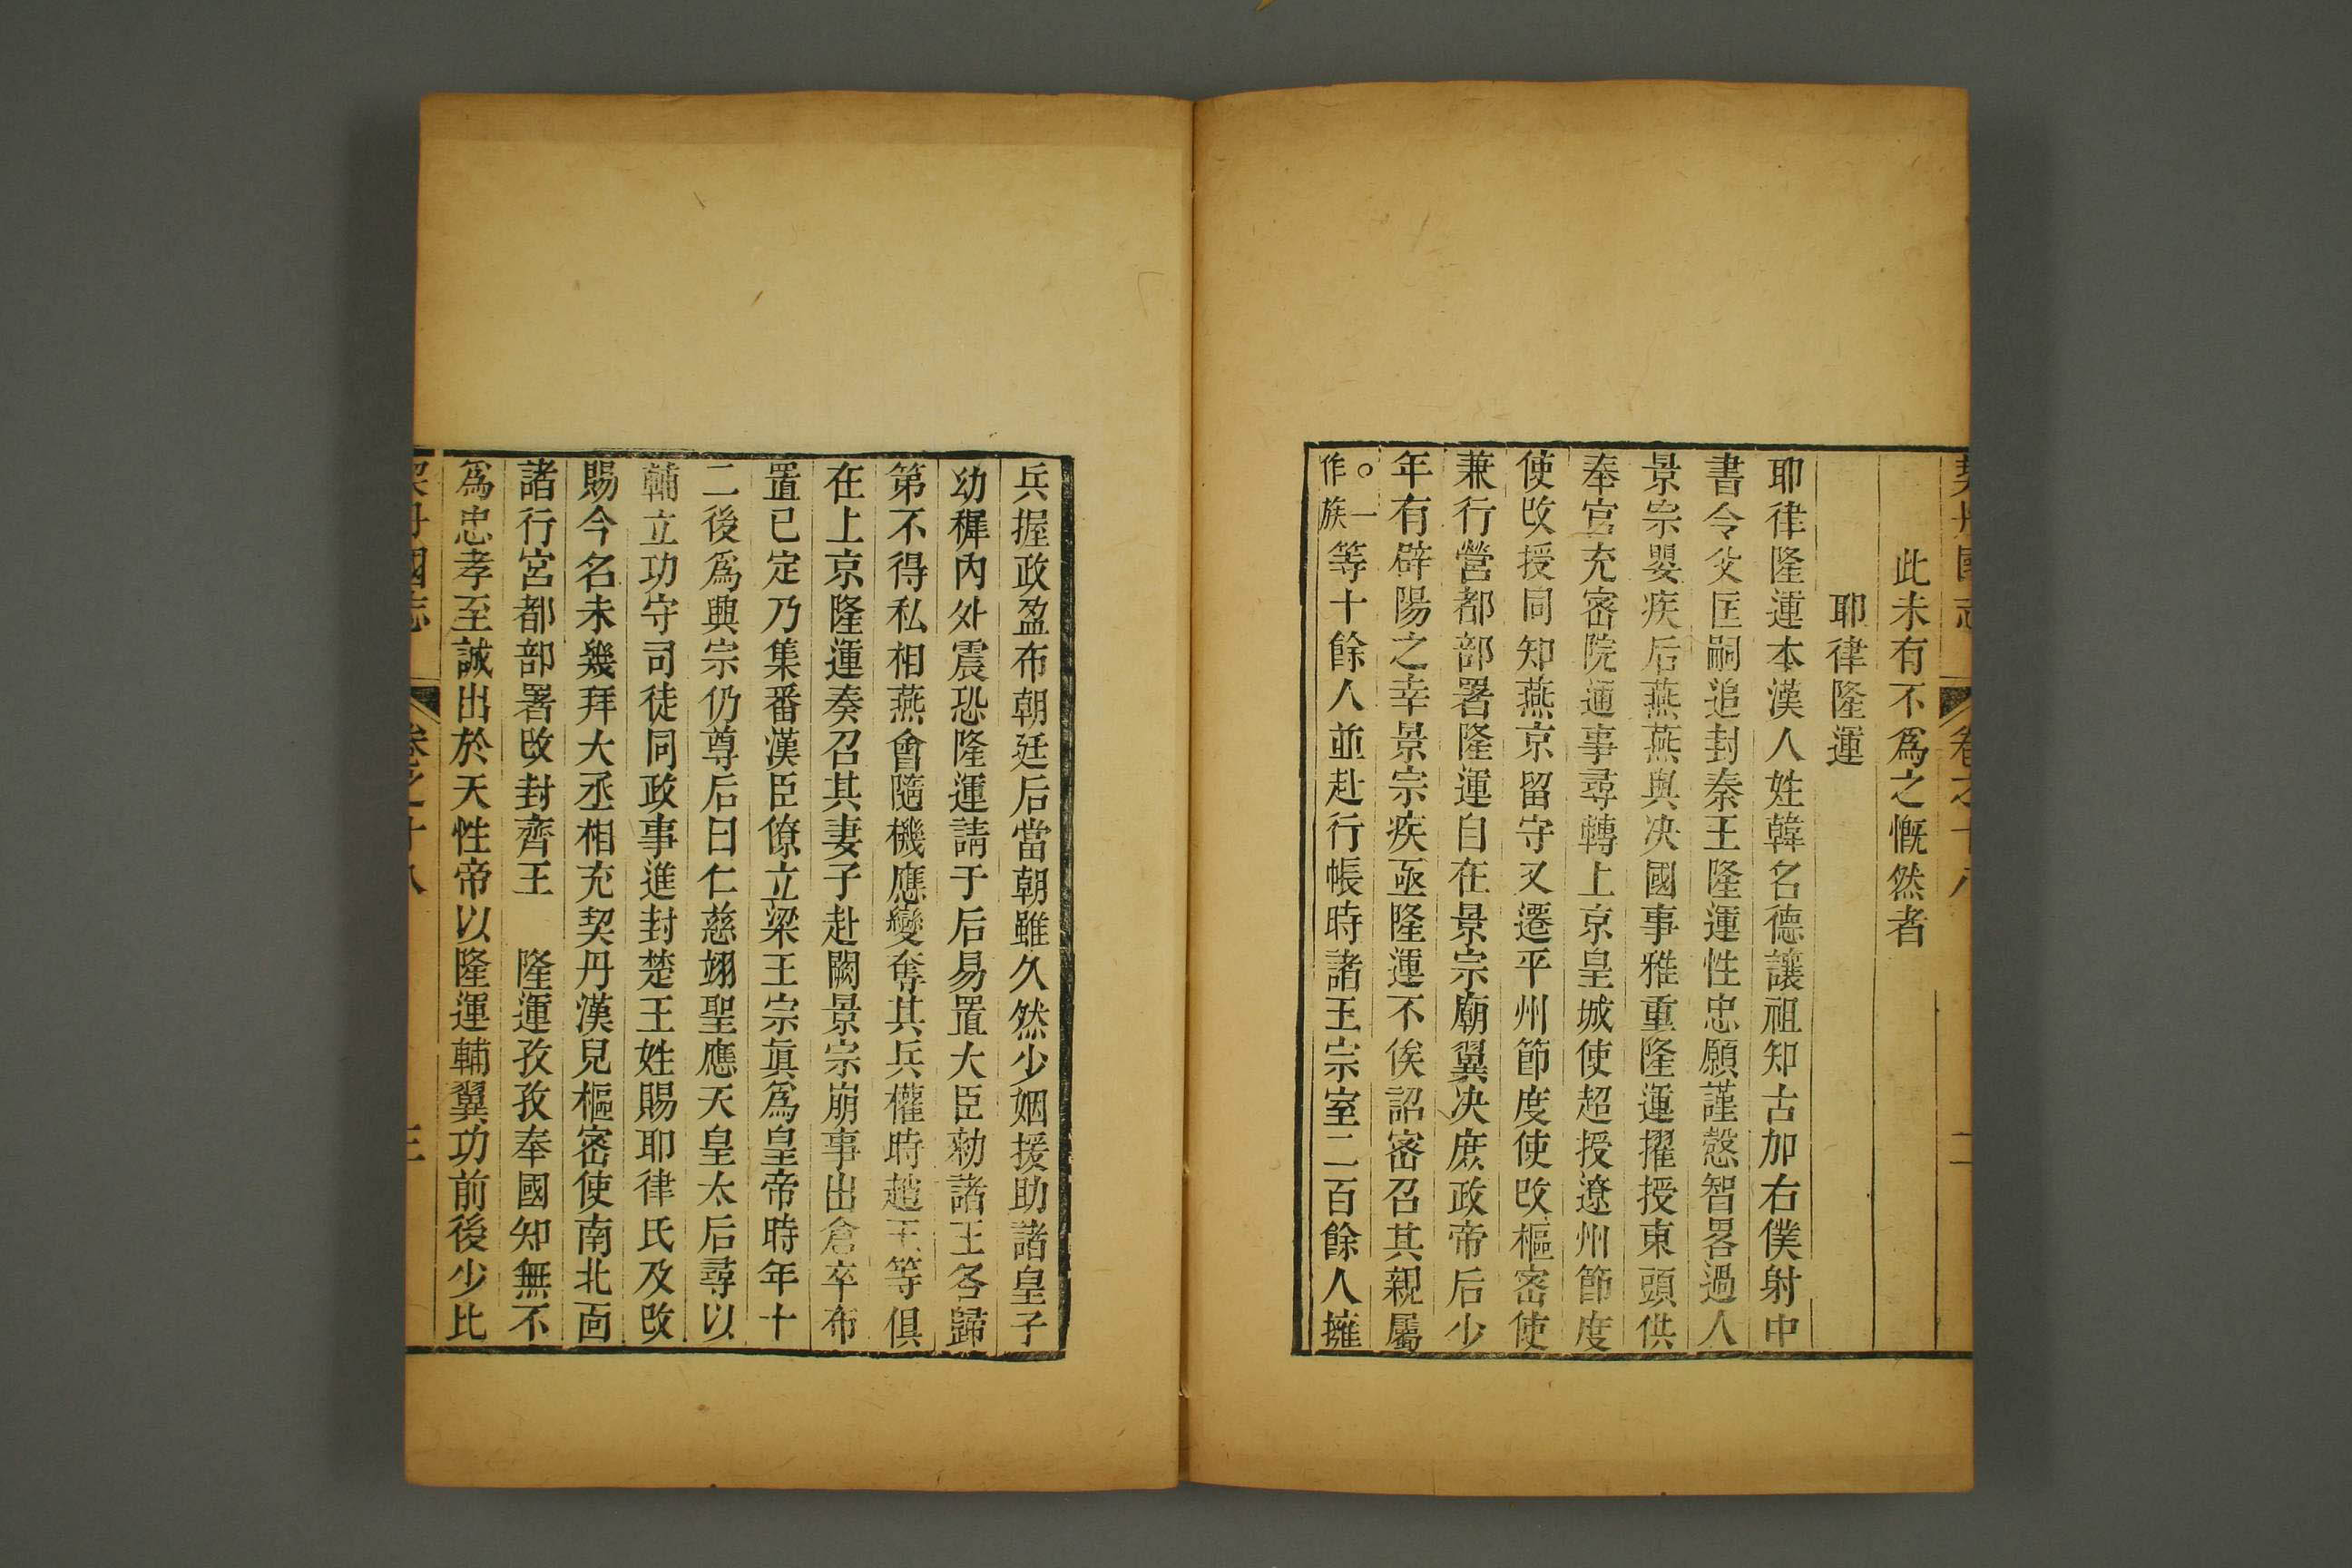 契丹國志 卷之十八 二
此未有不爲之慨然者
耶律隆運
耶律隆運本漢人姓韓名德讓祖知古加右僕射中
書令父匡嗣追封秦王隆運性忠愿謹慤智畧過人
景宗嬰疾后燕燕與决國事雅重隆運擢授東頭供
奉官充密院通事尋轉上京皇城使超授遼州節度
使改授同知燕京留守又遷平州節度使改樞密使
兼行營都部署隆運自在景宗廟翼决庶政帝后少
年有辟陽之幸景宗疾亟隆運不俟詔密召其親屬
○一作族等十餘人並赴行帳時諸王宗室二百餘人擁
兵握政盈布朝廷后當朝雖久然少姻援助諸皇子
幼穉內外震恐隆運請于后易置大臣勑諸王各歸
第不得私相燕會隨機應變奪其兵權時趙王等俱
在上京隆運奏召其妻子赴闕景宗崩事出倉卒布
置已定乃集番漢臣僚立梁王宗眞爲皇帝時年十
二後爲興宗仍尊后曰仁慈翊聖應天皇太后尋以
輔立功守司徒同政事進封楚王姓賜耶律氏及改
賜今名未幾拜大丞相充契丹漢兒樞密使南北面
諸行宮都部署改封齊王　隆運孜孜奉國知無不
爲忠孝至誠出於天性帝以隆運輔翼功前後少比
契丹國志 卷之十八 三